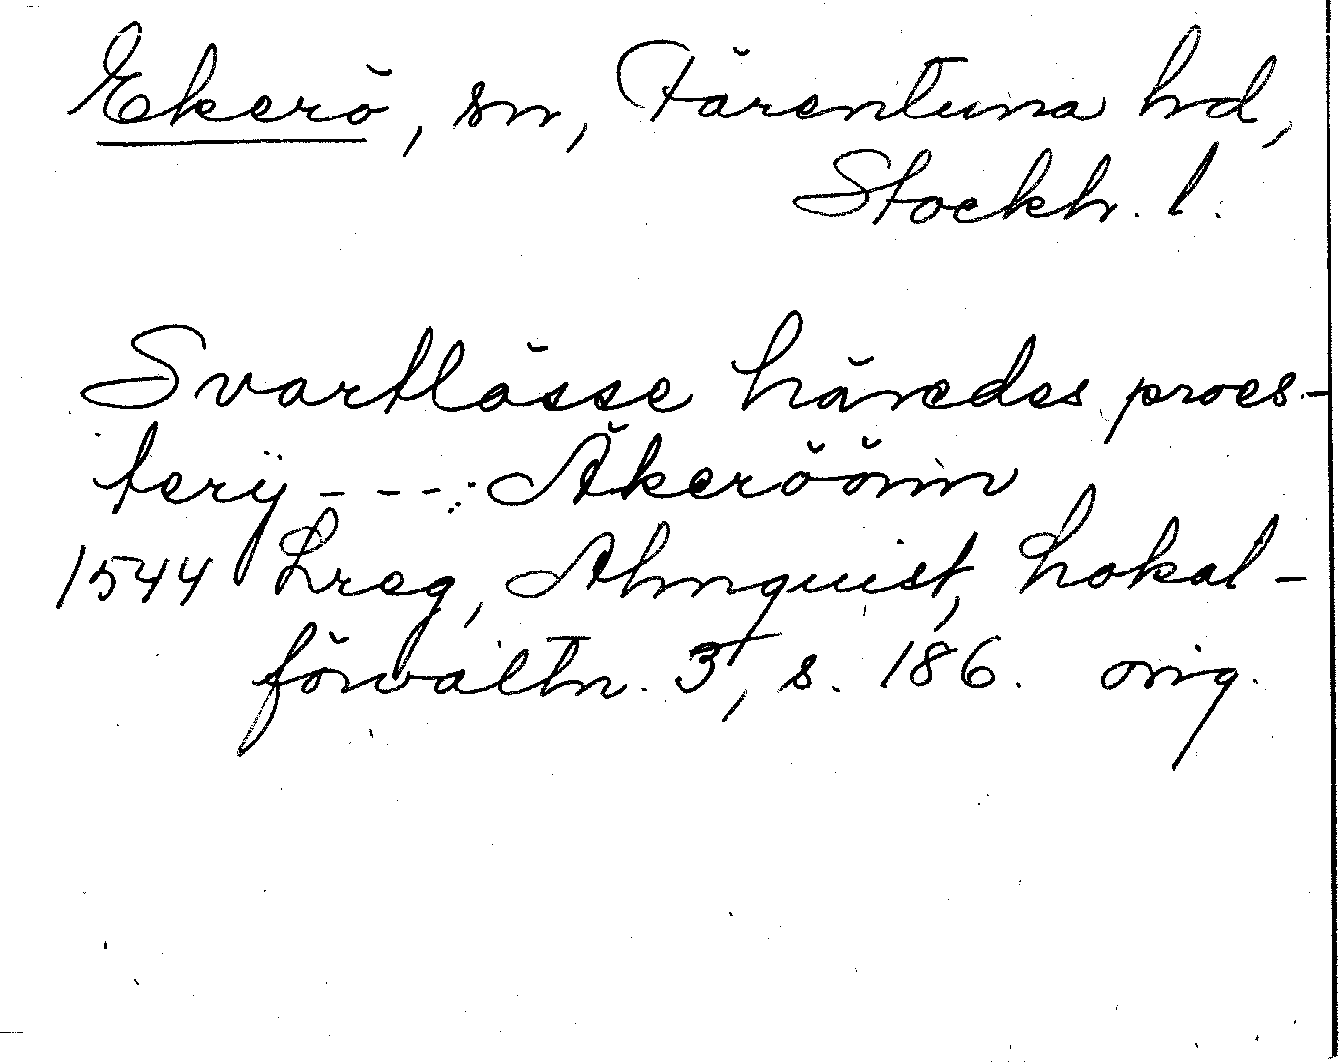 Ekerö, sn, Färentuna hd,
Stockh. l.
Svartlösse häredes proes-
terÿ - - - : Äkeröönn
1544 Lreg, Almquist, Lokal-
förvaltn. 3, s. 186. orig.